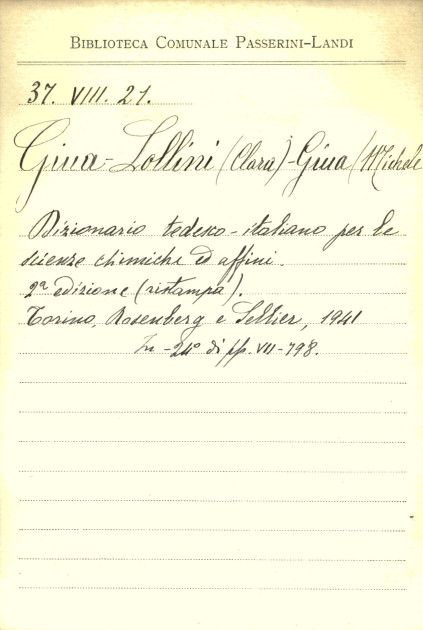 BIBLIOTECA COMUNALE PASSERINI-LANDI
37. VIII. 21.
Giua-Lollini (Clara)-Giua (Michele
Dizionario tedesco-italiano per le
scienze chimiche ed affini.
2ª edizione (ristampa).
Torino, Rosenberg e Sellier, 1941
In-24º di pp. VII-798.